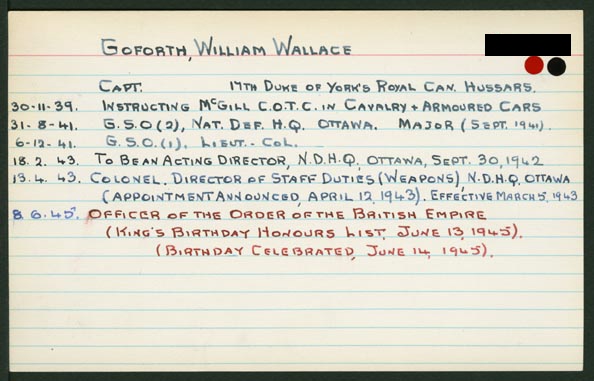 GOFORTH, WILLIAM WALLACE
CAPT. 17TH DUKE OF YORK'S ROYAL CAN. HUSSARS.
30-11-39. INSTRUCTING McGILL C.O.T.C. IN CAVALRY + ARMOURED CARS
31-8-41. G.S.O(2), NAT. DEF. H.Q. OTTAWA. MAJOR (SEPT. 1941).
6-12-41. G.S.O.(1). LIEUT.- COL.
18.2.43. TO BE AN ACTING DIRECTOR, N.D.H.Q, OTTAWA, SEPT. 30, 1942
13.4.43. COLONEL. DIRECTOR OF STAFF DUTIES (WEAPONS), N.D.H.Q, OTTAWA
(APPOINTMENT ANNOUNCED, APRIL 12, 1943). EFFECTIVE MARCH 5, 1943
8.6.45. OFFICER OF THE ORDER OF THE BRITISH EMPIRE
(KING'S BIRTHDAY HONOURS LIST, JUNE 13, 1945).
(BIRTHDAY CELEBRATED, JUNE 14, 1945).